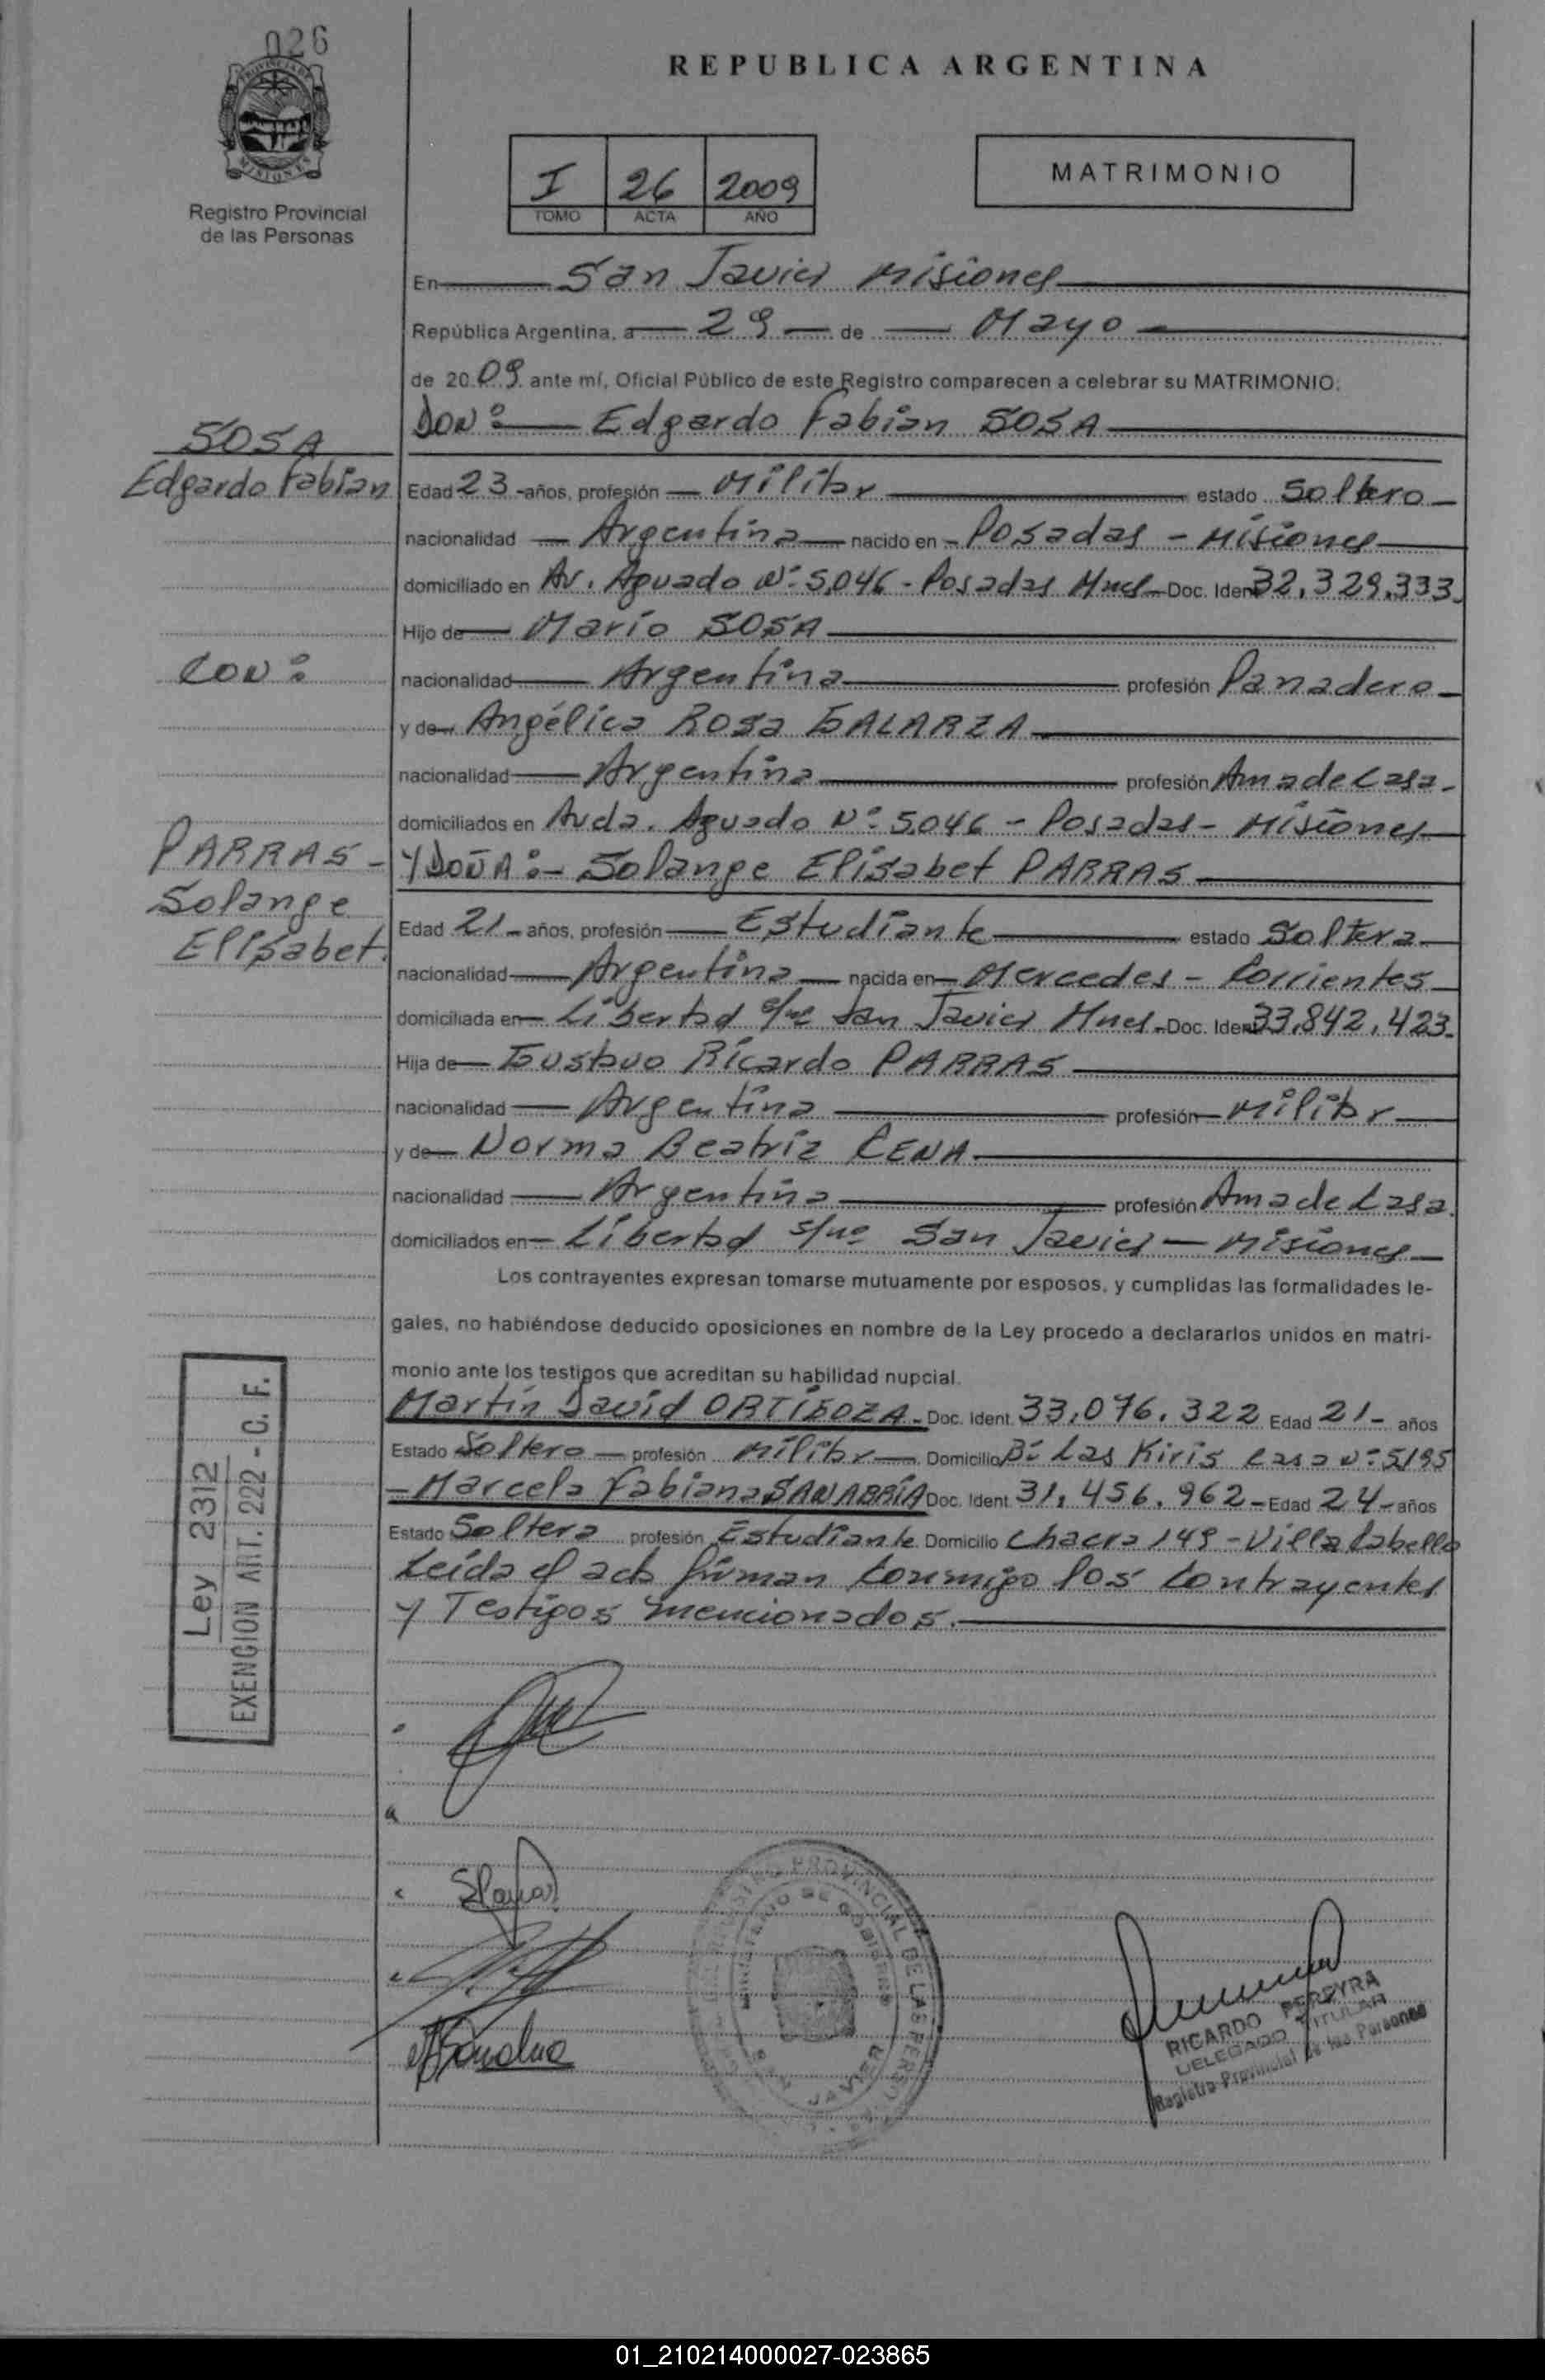 026
REPUBLICA ARGENTINA
PROVINCIA DE
MISIONES
Registro Provincial
de las Personas
I 26 2009
TOMO ACTA AÑO
MATRIMONIO
En San Javier Misiones
República Argentina, a 29 de Mayo
de 2009 ante mí, Oficial Público de este Registro comparecen a celebrar su MATRIMONIO.
DON: Edgardo Fabian SOSA
SOSA
Edgardo Fabian
Edad 23 - años, profesión Militar estado Soltero
nacionalidad Argentina nacido en Posadas - Misiones
domiciliado en Av. Aguado Nº 5.046 - Posadas Mnes Doc. Ident 32.329.333
Hijo de Mario SOSA
CON:
nacionalidad Argentina profesión Panadero
y de Angélica Rosa GALARZA
nacionalidad Argentina profesión Ama de Casa.
domiciliados en Avda. Aguado Nº 5046 - Posadas - Misiones
PARRAS -
Solange
Elisabet.
Y DOÑA: - Solange Elisabet PARRAS
Edad 21 - años, profesión Estudiante estado Soltera
nacionalidad Argentina nacida en Mercedes - Corrientes
domiciliada en Libertad s/nº San Javier Mnes - Doc. Ident 33.842.423.
Hija de Gustavo Ricardo PARRAS
nacionalidad Argentina profesión Militar
y de Norma Beatriz CENA
nacionalidad Argentina profesión Ama de Casa.
domiciliados en Libertad s/nº San Javier - Misiones
Los contrayentes expresan tomarse mutuamente por esposos, y cumplidas las formalidades le-
gales, no habiéndose deducido oposiciones en nombre de la Ley procedo a declararlos unidos en matri-
monio ante los testigos que acreditan su habilidad nupcial.
Martín David ORTIGOZA - Doc. Ident. 33.076.322 Edad 21 - años
Estado Soltero profesión Militar Domicilio Bº Las Kiris Casa Nº 5195
- Marcela Fabiana SANABRÍA Doc. Ident. 31.456.962 - Edad 24 - años
Estado Soltera profesión Estudiante Domicilio Chacra 149 - Villa Cabello
Leída el acta firman conmigo los contrayentes
y Testigos mencionados.
Ley 2312
EXENCION ART. 222 - C. F.
REGISTRO PROVINCIAL DE LAS PERSONAS
MINISTERIO DE GOBIERNO
SAN JAVIER
RICARDO PEREYRA
DELEGADO TITULAR
Registro Provincial de las Personas
01_210214000027-023865